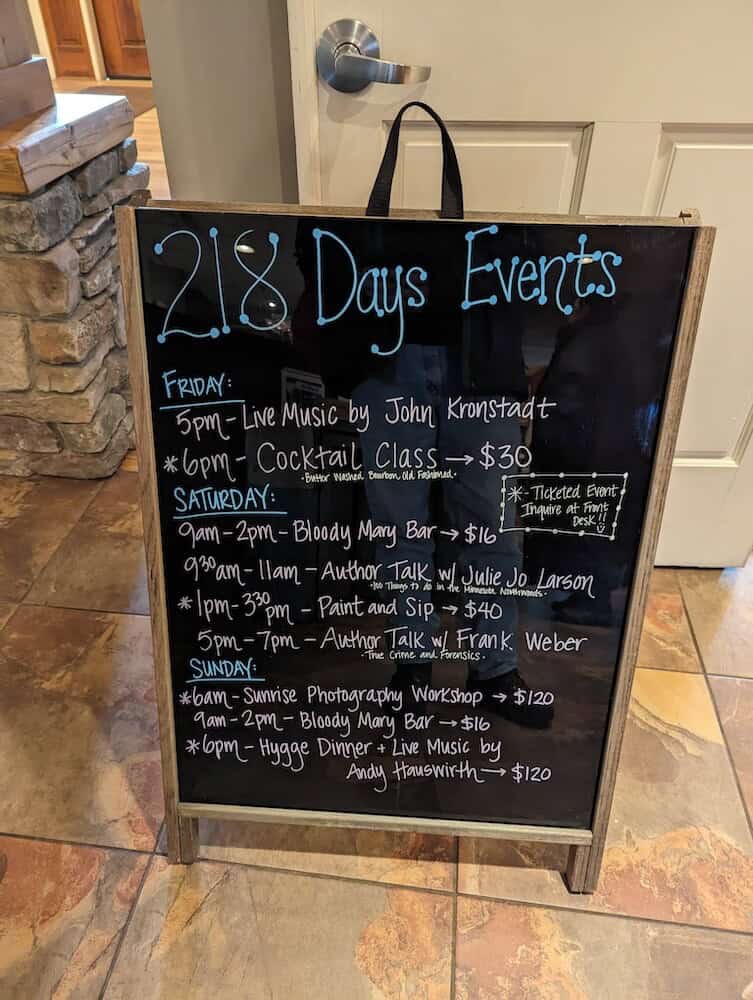 218 Days Events
FRIDAY:
5pm - Live Music by John Kronstadt
*6pm - Cocktail Class → $30
• Butter Washed Bourbon Old Fashioned •
* - Ticketed Event
Inquire at Front
Desk!!
SATURDAY:
9am - 2pm - Bloody Mary Bar → $16
9:30am - 11am - Author Talk w/ Julie Jo Larson
• 100 Things to do in the Minnesota Northwoods •
*1pm - 3:30pm - Paint and Sip → $40
5pm - 7pm - Author Talk w/ Frank Weber
• True Crime and Forensics •
SUNDAY:
*6am - Sunrise Photography Workshop → $120
9am - 2pm - Bloody Mary Bar → $16
*6pm - Hygge Dinner + Live Music by
Andy Hauswirth → $120